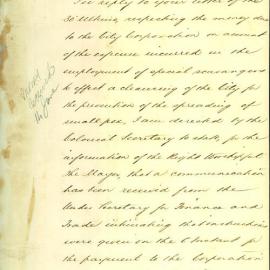 In reply to your letter of the
30 Ultimo, respecting the money due
to the City Corporation on account
of the expense incurred in the
employment of special scavengers
to effect a cleansing of the City for
the prevention of the spreading of
small pox, I am directed by the
Colonial Secretary to state, for the
information of the Right Worshipful
The Mayor, that a communication
has been received from the
Under Secretary for Finance and
Trade intimating that instructions
were given on the Instant for
the payment to the Corporation